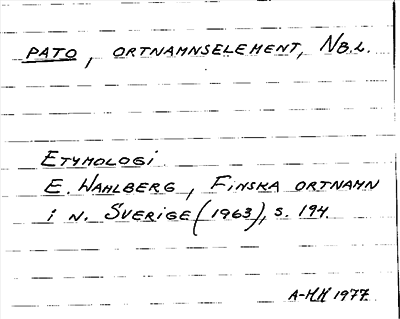 PATO, ORTNAMNSELEMENT, NB.L.
ETYMOLOGI
E. WAHLBERG, FINSKA ORTNAMN
I N. SVERIGE (1963), S. 194.
A-HH 1977